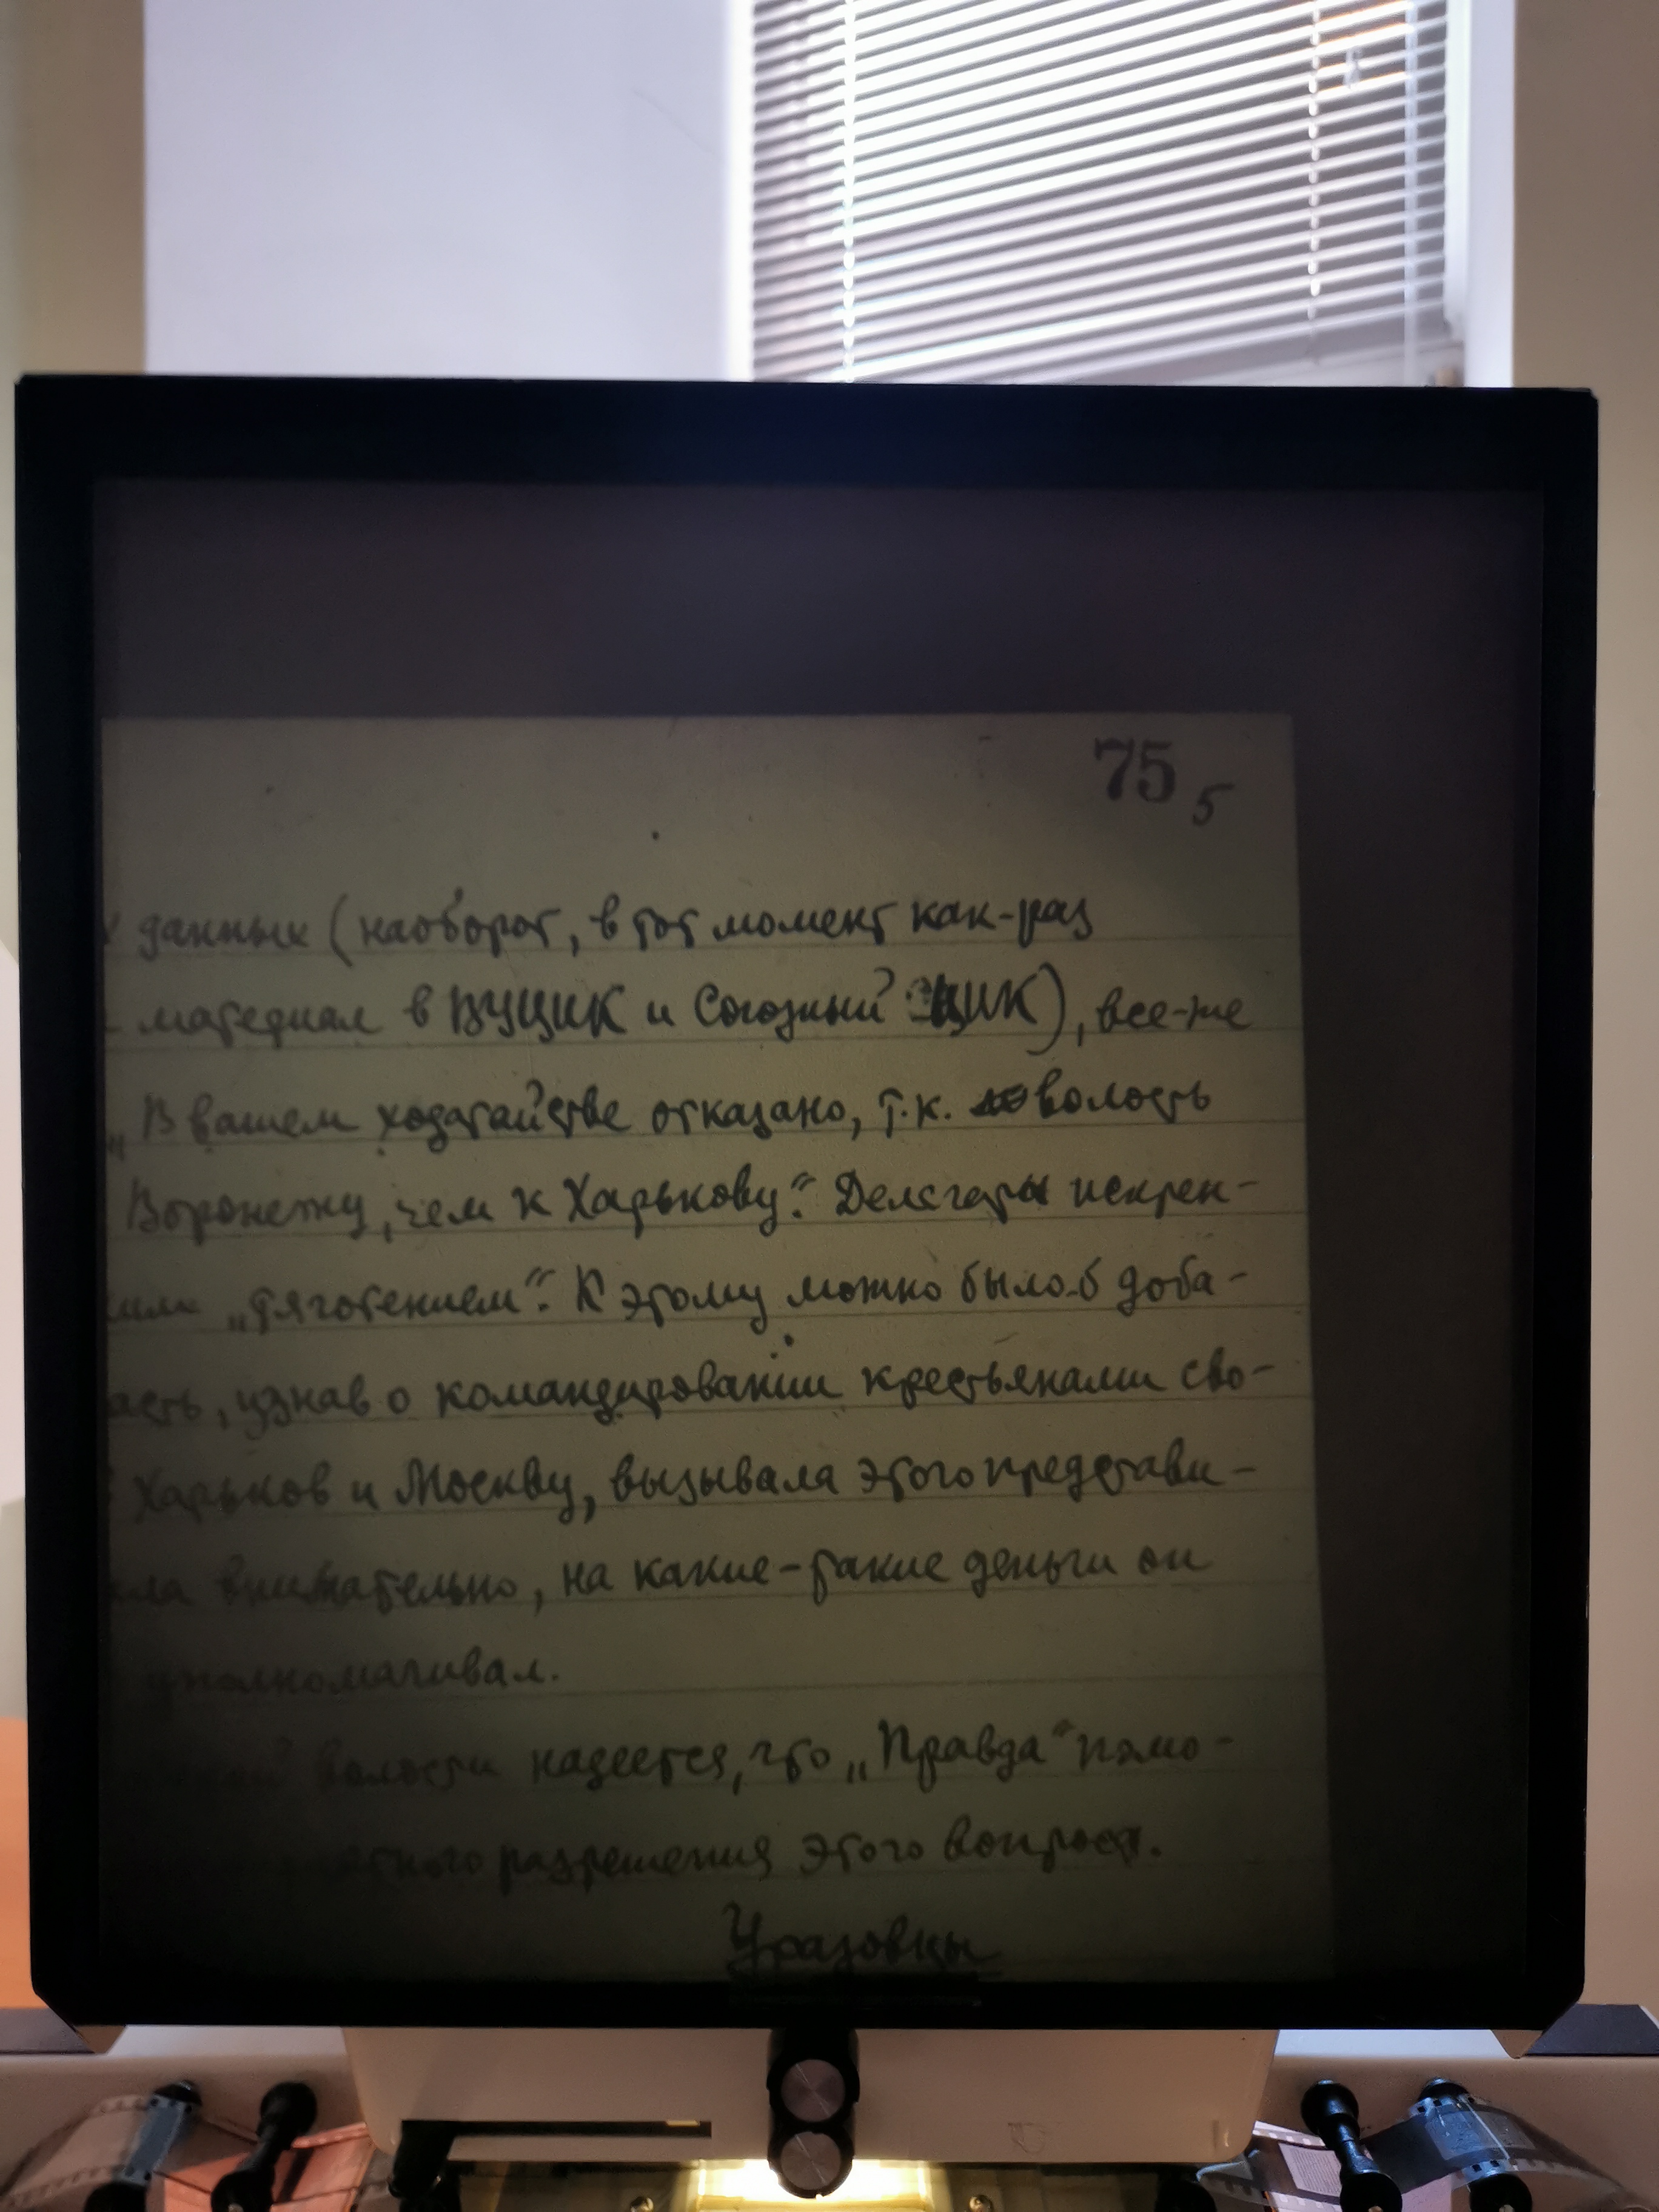 75 5
данных (наоборот, в тот момент как-раз
материал в ВУЦИК и Союзный ЦИК), все-же
„В вашем ходатайстве отказано, т.к. волость
Воронежу, чем к Харькову“. Делегаты искрен-
„тяготением“. К этому можно было-б доба-
асть, узнав о командировании крестьянами сво-
Харьков и Москву, вызывала этого представи-
ила внимательно, на какие-такие деньги он
уполномачивал.
волости надеется, что „Правда“ помо-
разрешения этого вопроса.
Уразовцы